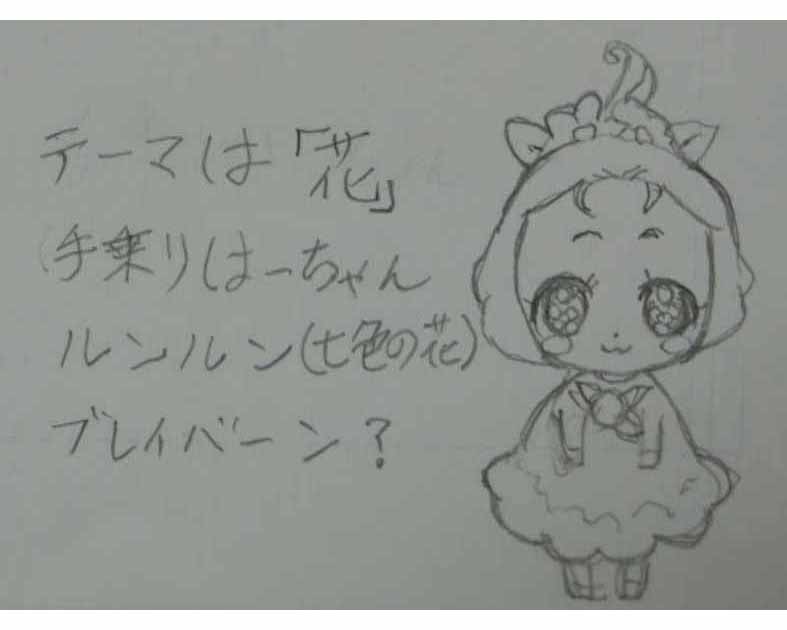 テーマは「花」
手乗りはーちゃん
ルンルン(七色の花)
ブレイバーン?